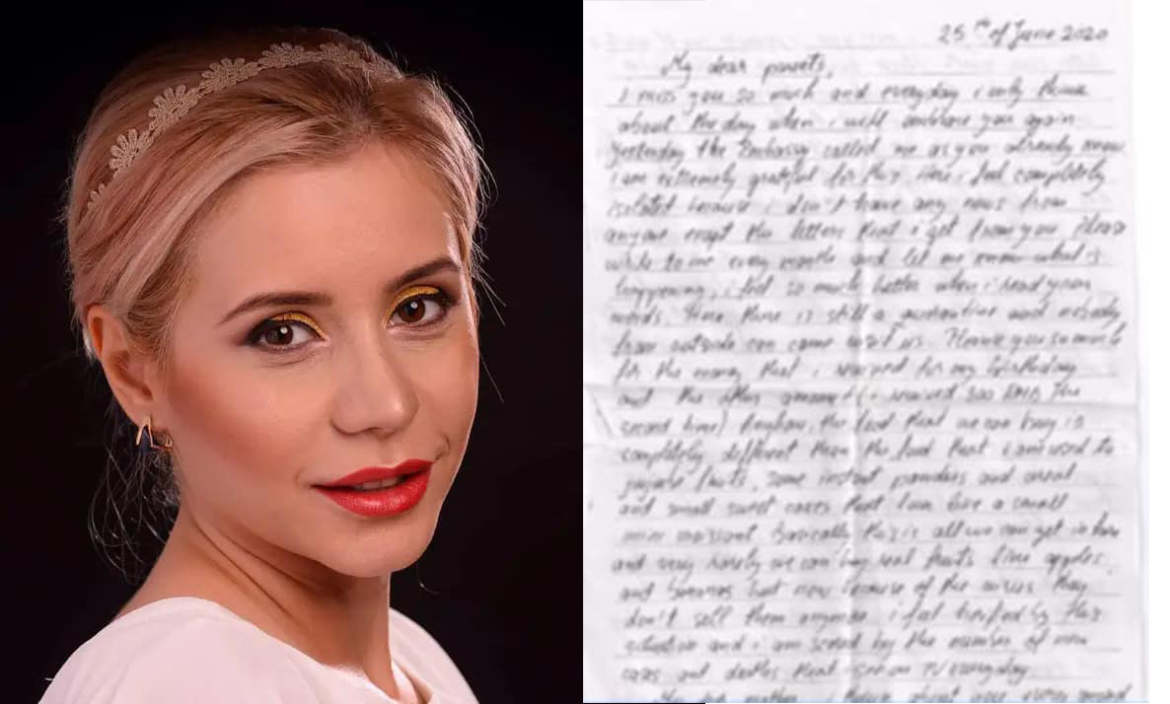 25th of June 2020
My dear parents,
I miss you so much and everyday i only think
about the day when i will embrace you again
Yesterday the Embassy called me as you already know
i am extremely grateful for this. Here i feel completely
isolated because i don't have any news from
anyone except the letters that i get from you. Please
write to me every month and let me know what is
happening, i feel so much better when i read your
words. Here there is still a quarantine and nobody
from outside can come visit us. Thank you so much
for the money that i received for my birthday
and the other amount (i received 300 the
second time) Anyhow, the food that we can buy is
completely different than the food that i am used to
fruits, some instant powders and cereal
and small sweet cakes that look like a small
mini croissant. Basically this is all we can get in here
and very rarely we can buy real fruits like apples
and bananas but now because of the virus they
don't sell them anymore. i feel terrified by this
situation and i am scared by the number of new
cases and deaths that i see on TV everyday
My dear mother, i think about you every second